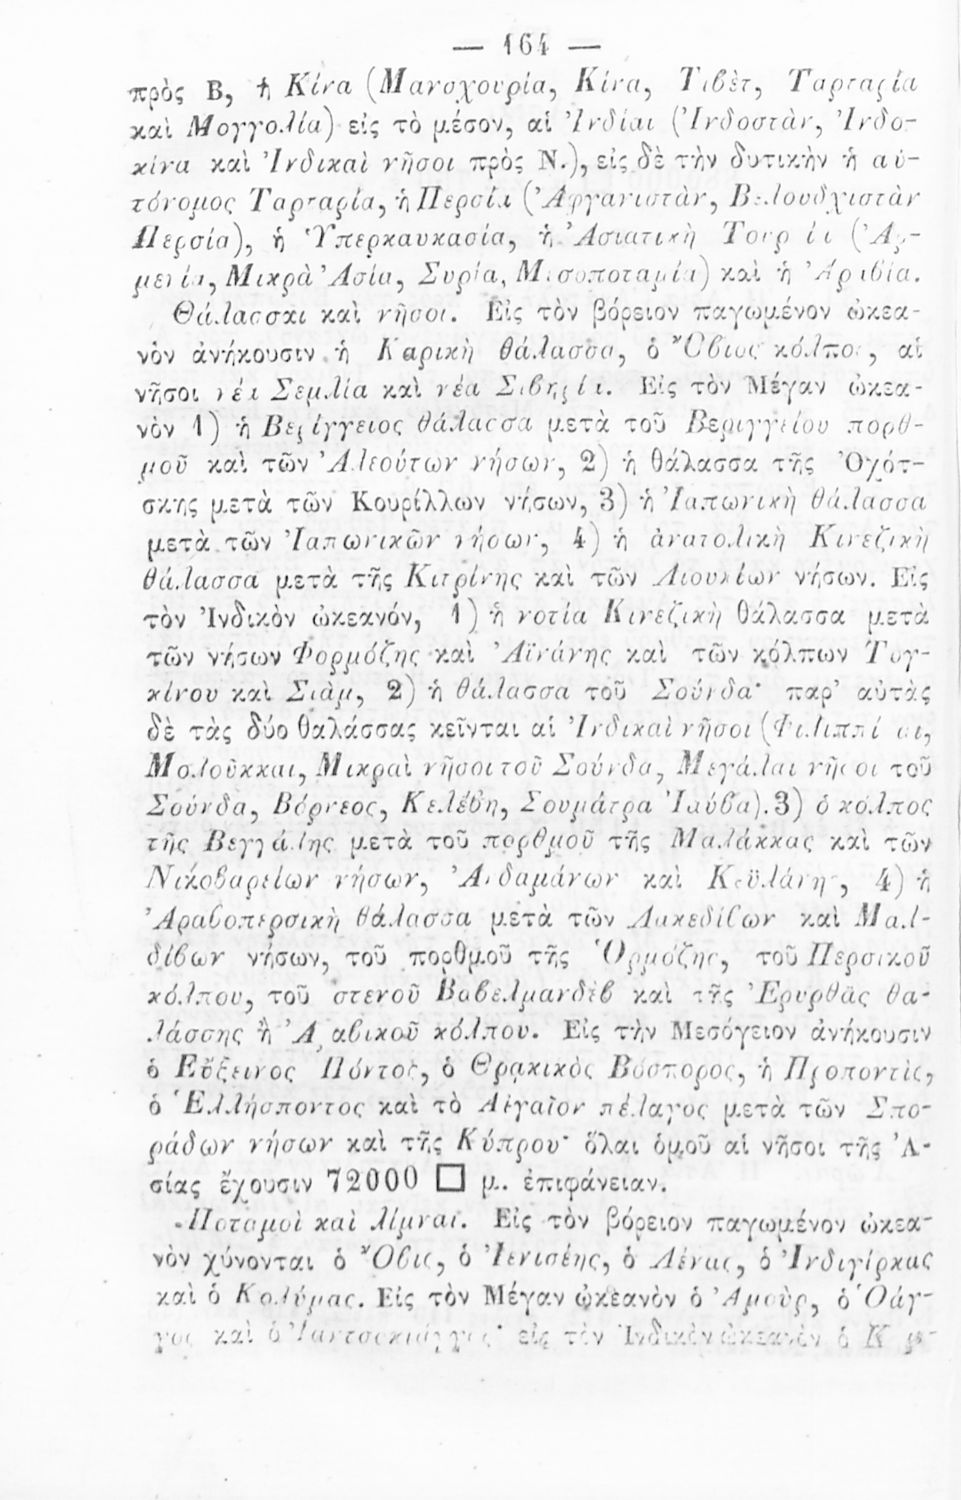 — 164 —
πρὸς Β, ἡ Κίνα (Μανσχουρία, Κίνα, Τιβὲτ, Ταρταρία
καὶ Μογγολία) εἰς τὸ μέσον, αἱ Ἰνδίαι (Ἰνδοστὰν, Ἰνδο-
κίνα καὶ Ἰνδικαὶ νῆσοι πρὸς Ν.), εἰς δὲ τὴν δυτικὴν ἡ αὐ-
τόνομος Ταρταρία, ἡ Περσία (Ἀφγανιστὰν, Βελουδχιστὰν
Περσία), ἡ Ὑπερκαυκασία, ἡ Ἀσιατικὴ Τουρκία (Ἀρ-
μενία, Μικρὰ Ἀσία, Συρία, Μεσοποταμία) καὶ ἡ Ἀραβία.
Θάλασσαι καὶ νῆσοι. Εἰς τὸν βόρειον παγωμένον ὠκεα-
νὸν ἀνήκουσιν ἡ Καρικὴ θάλασσα, ὁ Ὄβιος κόλπος, αἱ
νῆσοι νέα Σεμλία καὶ νέα Σιβηρία. Εἰς τὸν Μέγαν ὠκεα-
νὸν 1) ἡ Βερίγγειος θάλασσα μετὰ τοῦ Βεριγγείου πορθ-
μοῦ καὶ τῶν Ἀλεούτων νήσων, 2) ἡ θάλασσα τῆς Ὀχότ-
σκης μετὰ τῶν Κουρίλλων νήσων, 3) ἡ Ἰαπωνικὴ θάλασσα
μετὰ τῶν Ἰαπωνικῶν νήσων, 4) ἡ ἀνατολικὴ Κινεζικὴ
θάλασσα μετὰ τῆς Κιτρίνης καὶ τῶν Λιουκίων νήσων. Εἰς
τὸν Ἰνδικὸν ὠκεανόν, 1) ἡ νοτία Κινεζικὴ θάλασσα μετὰ
τῶν νήσων Φορμόζης καὶ Ἀϊνάνης καὶ τῶν κόλπων Τογ-
κίνου καὶ Σιὰμ, 2) ἡ θάλασσα τοῦ Σούνδα· παρ' αὐτὰς
δὲ τὰς δύο θαλάσσας κεῖνται αἱ Ἰνδικαὶ νῆσοι (Φιλιππίναι,
Μολοῦκκαι, Μικραὶ νῆσοι τοῦ Σούνδα, Μεγάλαι νῆσοι τοῦ
Σούνδα, Βόρνεος, Κελέβη, Σουμάτρα Ἰαύβα). 3) ὁ κόλπος
τῆς Βεγγάλης μετὰ τοῦ πορθμοῦ τῆς Μαλάκκας καὶ τῶν
Νικοβαρείων νήσων, Ἀνδαμάνων καὶ Κεϋλάνης, 4) ἡ
Ἀραβοπερσικὴ θάλασσα μετὰ τῶν Λακεδίβων καὶ Μαλ-
δίβων νήσων, τοῦ πορθμοῦ τῆς Ὁρμόζης, τοῦ Περσικοῦ
κόλπου, τοῦ στενοῦ Βαβελμανδὲβ καὶ τῆς Ἐρυρθᾶς θα-
λάσσης ἢ Ἀραβικοῦ κόλπου. Εἰς τὴν Μεσόγειον ἀνήκουσιν
ὁ Εὔξεινος Πόντος, ὁ Θρακικὸς Βόσπορος, ἡ Προποντὶς,
ὁ Ἑλλήσποντος καὶ τὸ Αἰγαῖον πέλαγος μετὰ τῶν Σπο-
ράδων νήσων καὶ τῆς Κύπρου· ὅλαι ὁμοῦ αἱ νῆσοι τῆς Ἀ-
σίας ἔχουσιν 72000 □ μ. ἐπιφάνειαν.
Ποταμοὶ καὶ λίμναι. Εἰς τὸν βόρειον παγωμένον ὠκεα-
νὸν χύνονται ὁ Ὄβις, ὁ Ἰενισέης, ὁ Λένας, ὁ Ἰνδιγίρκας
καὶ ὁ Κολύμας. Εἰς τὸν Μέγαν ὠκεανὸν ὁ Ἀμοὺρ, ὁ Ὁάγ-
γος καὶ ὁ Ἰαντσεκιάγγος· εἰς τὸν Ἰνδικὸν ὠκεανὸν ὁ